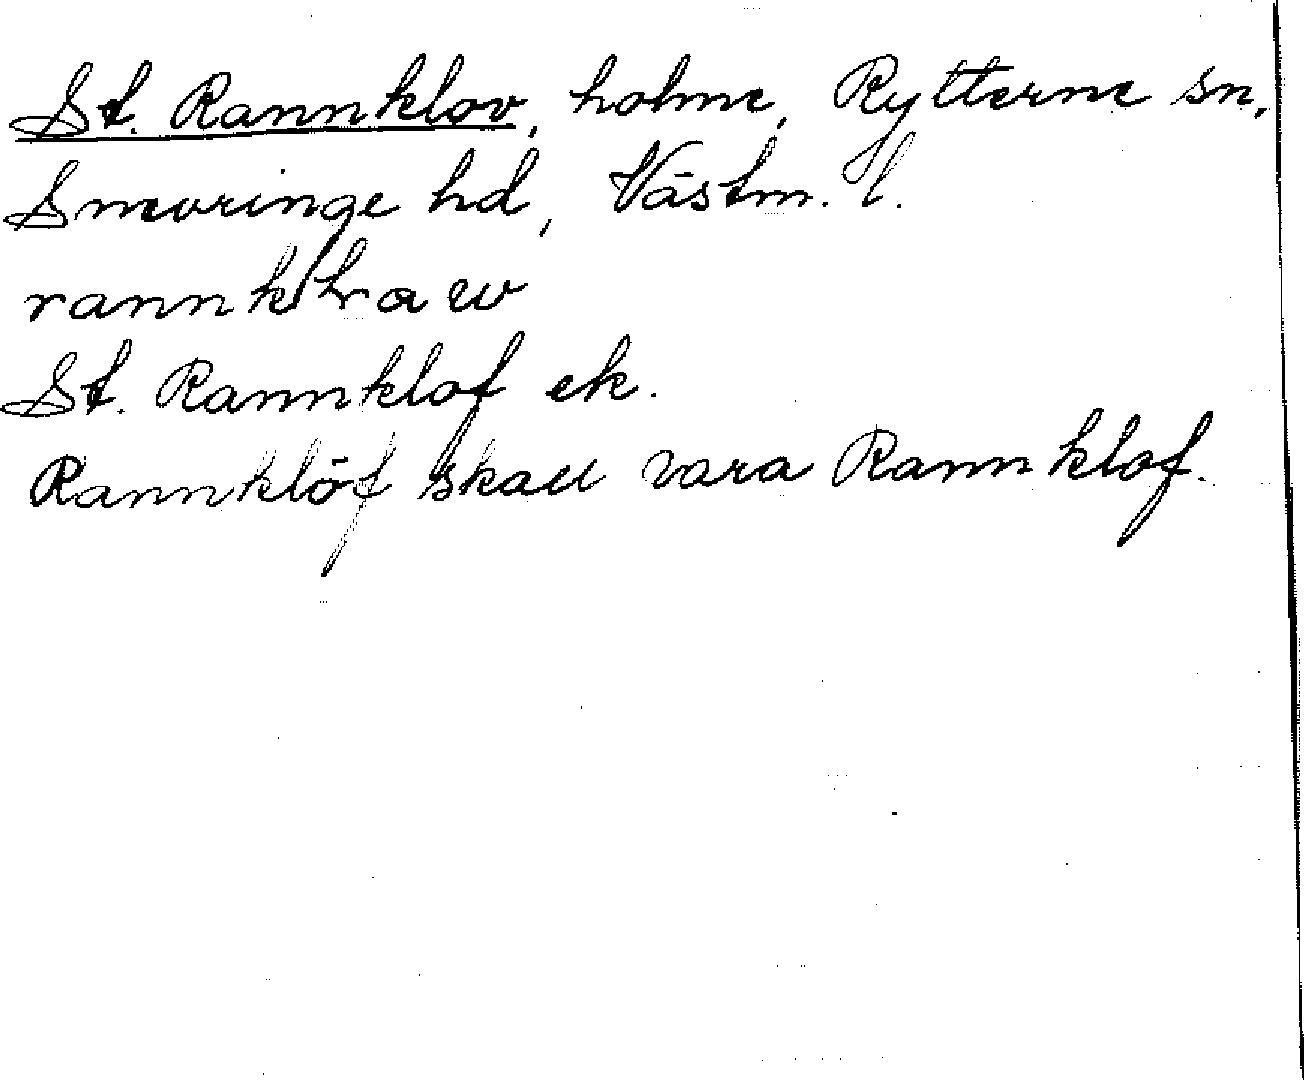 St. Rannklov, holme, Rytterne sn,
Snevringe hd, Västm. l.
St. Rannklof ek.
Rannklöf skall vara Rannklof.